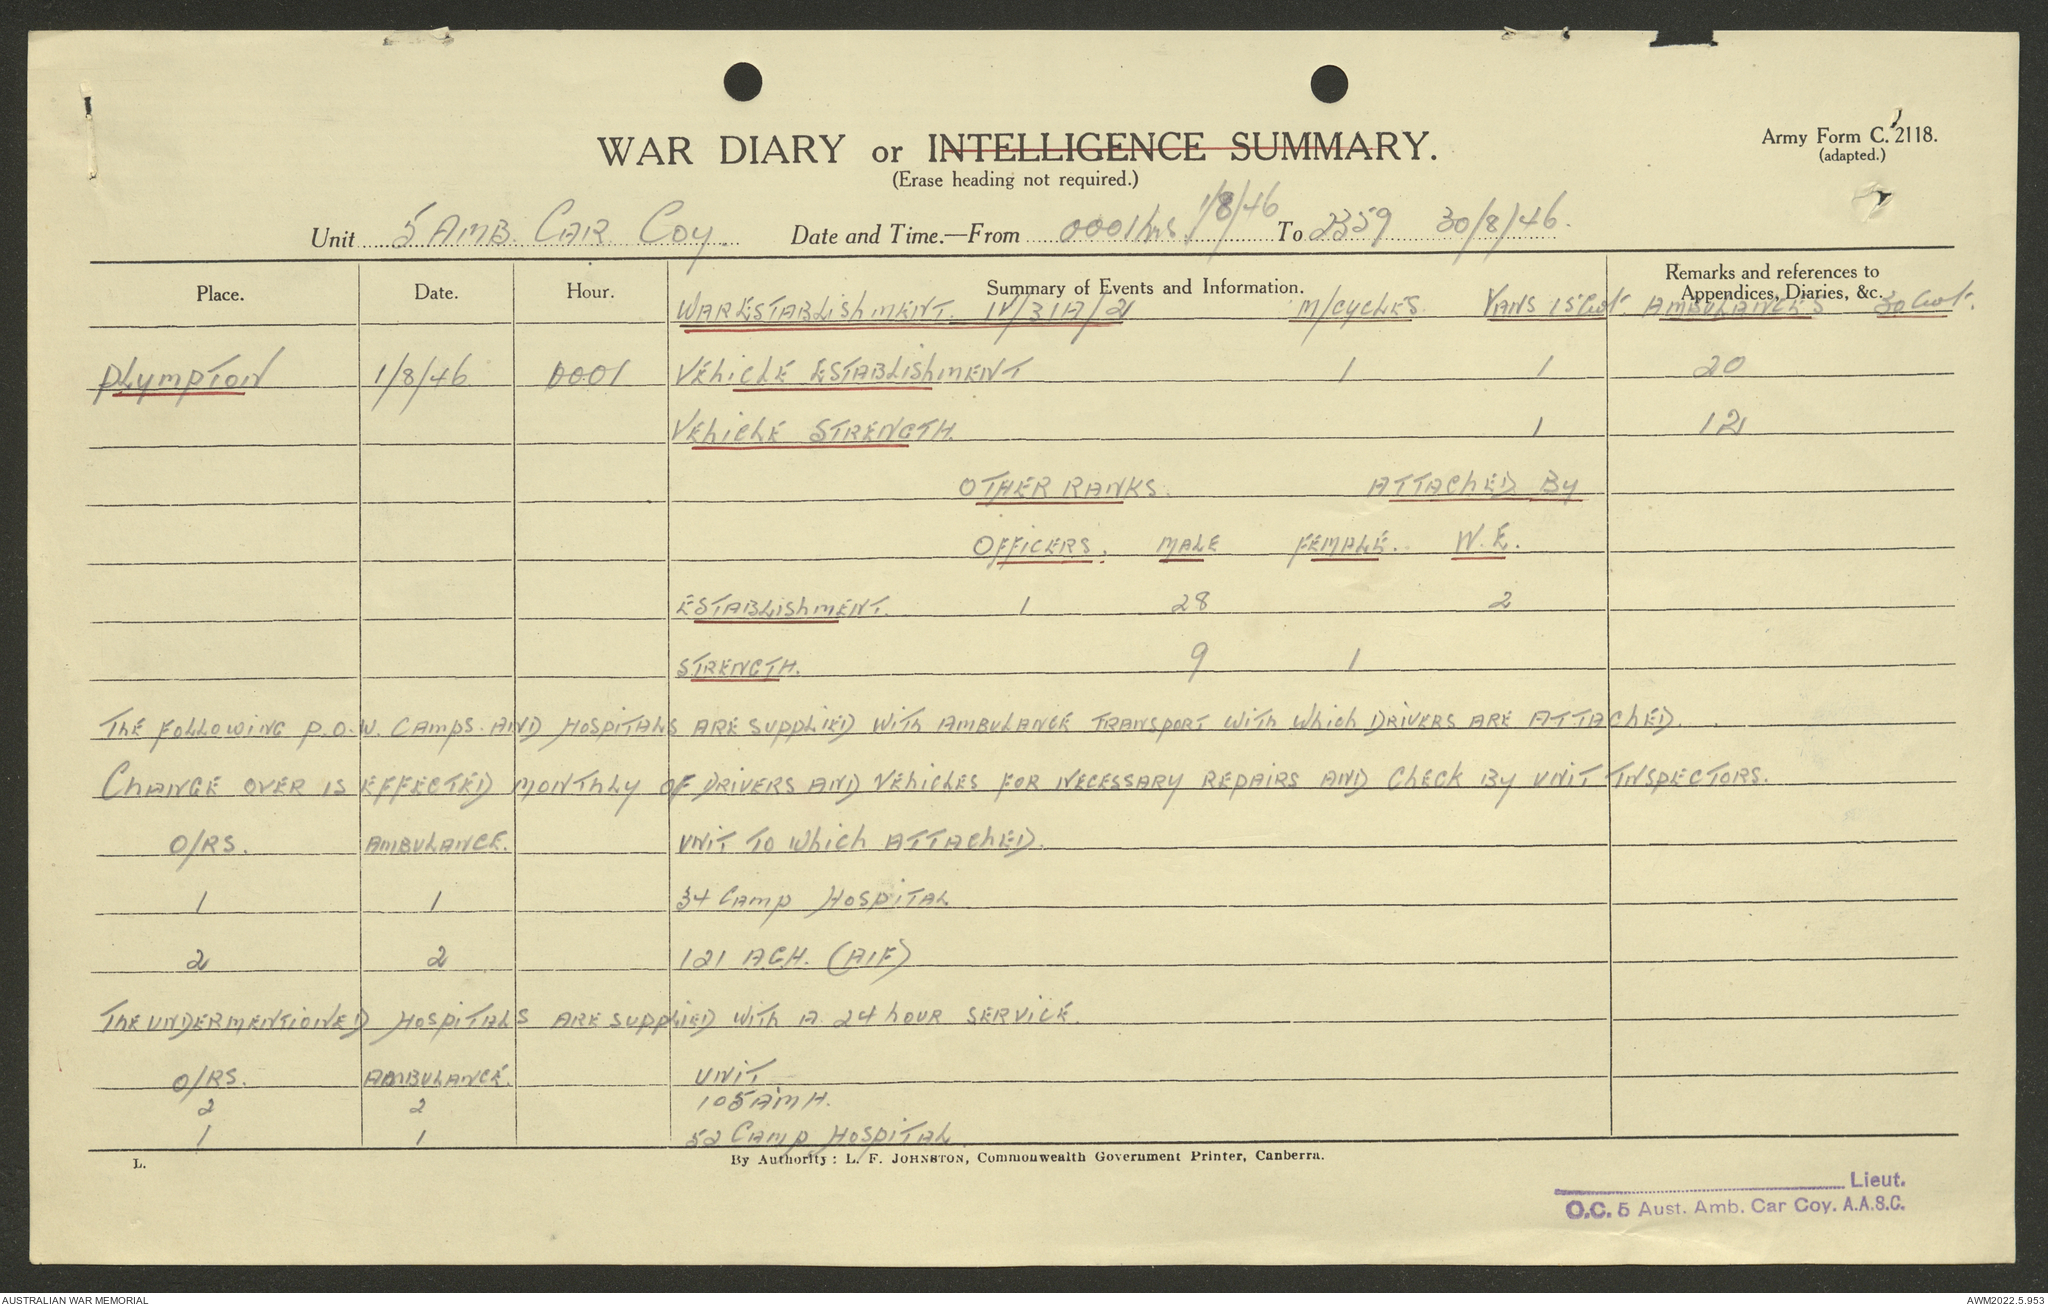 WAR DIARY or INTELLIGENCE SUMMARY.
(Erase heading not required.)
Army Form C. 2118.
(adapted.)
Unit 5 AMB. CAR COY. Date and Time.—From 0001hrs. 1/8/46 To 2359 30/8/46.
Place. Date. Hour. Summary of Events and Information. Remarks and references to Appendices, Diaries, &c.
WAR ESTABLISHMENT. IV/31A/2 M/CYCLES. VANS 15Cwt. AMBULANCES 30 Cwt.
PLYMPTON 1/8/46 0001 VEHICLE ESTABLISHMENT 1 1 20
VEHICLE STRENGTH. 1 12
OTHER RANKS. ATTACHED BY
OFFICERS. MALE FEMALE. W.E.
ESTABLISHMENT. 1 28 2
STRENGTH. 9 1
THE FOLLOWING P.O.W. CAMPS. AND HOSPITALS ARE SUPPLIED WITH AMBULANCE TRANSPORT WITH WHICH DRIVERS ARE ATTACHED.
CHANGE OVER IS EFFECTED MONTHLY OF DRIVERS AND VEHICLES FOR NECESSARY REPAIRS AND CHECK BY UNIT INSPECTORS.
O/RS. AMBULANCE. UNIT TO WHICH ATTACHED.
1 1 34 CAMP HOSPITAL
2 2 121 A.G.H. (AIF)
THE UNDERMENTIONED HOSPITALS ARE SUPPLIED WITH A 24 HOUR SERVICE.
O/RS. AMBULANCE. UNIT
2 2 105 A.M.H.
1 1 52 CAMP HOSPITAL.
L. By Authority: L. F. JOHNSTON, Commonwealth Government Printer, Canberra.
Lieut.
O.C. 5 Aust. Amb. Car Coy. A.A.S.C.
AUSTRALIAN WAR MEMORIAL AWM2022.5.953